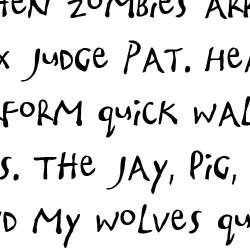 HEN ZOMBIES ARR
X JUDGE PAT. HEA
FORM QUICK WAL
S. THE JAY, PIG,
ND MY WOLVES QU